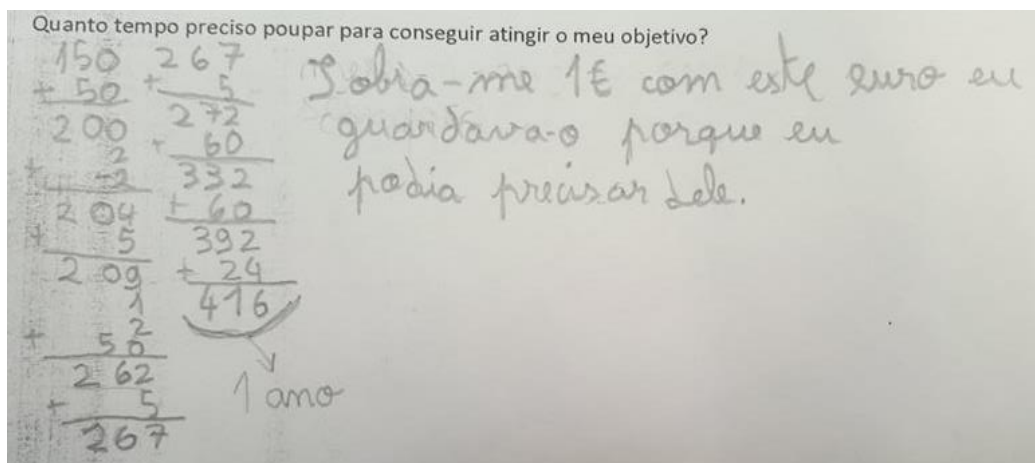 Quanto tempo preciso poupar para conseguir atingir o meu objetivo?
150
+ 50
200
2
+ 2
204
+ 5
209
1
2
+ 50
262
+ 5
267
267
+ 5
272
+ 60
332
+ 60
392
+ 24
416
1 ano
Sobra-me 1€ com este euro eu
guardava-o porque eu
podia precisar dele.